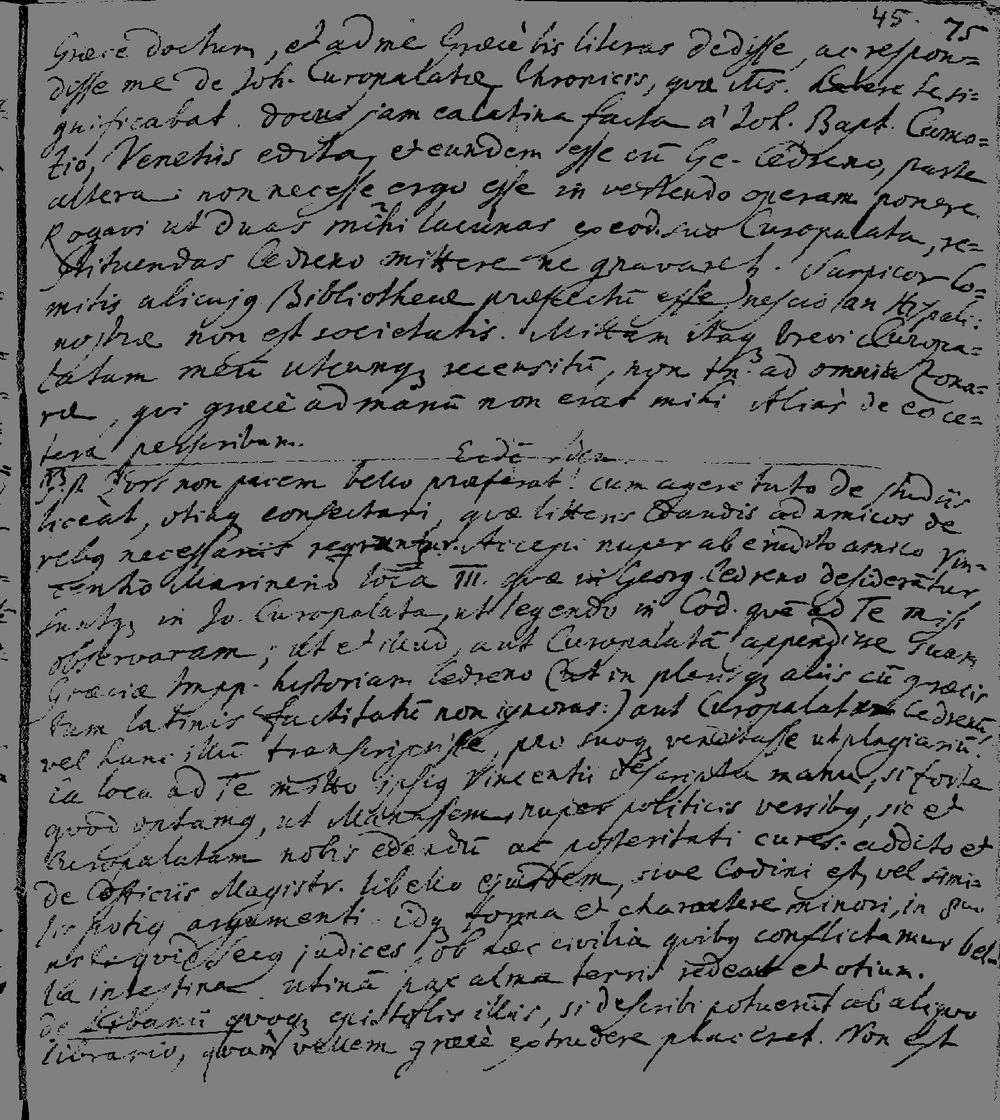 45. 75
Graecè doctum, et ad me Graecè bis literas dedisse, ac respon=
disse me de Joh. Curopalatae Chronicis, quae Ms. habere se si=
gnificabat. docui jam ea latina facta à Joh. Bapt. Cumo=
tio, Venetiis edita, et eundem esse cū Ge. Cedreno, parte
altera: non necesse ergo esse in vertendo operam ponere.
Rogavi ut duas mihi lacunas ex cod. suo Curopalata, re=
stituendas Cedreno mittere ne gravaretur. Suspicor Co=
mitis alicujq Bibliothecae praefectū esse, nescio an Hispali:
nostrae non est societatis. Mittam itaq brevi Curopa=
latam meū utcunq recensitū, non tn̄ ad omnia Zona=
rae, qui graecè ad manū non erat mihi. Aliàs de eo ce=
tera perscribam.
Eidē
Quis non pacem bello praeferat? cum agere tuto de studiis
liceat, otiaq consectari, quae litteris dandis ad amicos de
rebq necessariis Accepi nuper ab erudito amico Vin=
centio Marinerio loca III. quae in Georg. Cedreno desiderātur
suntq in Jo. Curopalata, ut legendo in Cod. quē ad Te misi
observaram; ut et illud, aut Curopalatā appendice suam
Graeciae Impp. historiam Cedreno (ut in plerisq aliis cū graecis
tum latinis factitatū non ignoras:) aut Curopalatam Cedrenū,
vel hunc illū transcripsisse, pro suoq venditasse ut plagiariū.
Ea loca ad Te mitto ipsiq Vincentii descripta manu, si forte
quod optamq, ut Manassem nuper politicis versibq, sic et
Curopalatam nobis edendū ac posteritati cures. addito et
de Officiis Magistr. libello ejusdem, sive Codini est, vel simi=
lis potiq argumenti. idq forma et charactere minori, in 8vo
nisi quid secq judices, ob haec civilia quibq conflictamur bel=
la intestina. utinā pax alma terris redeat et otium.
de Libanii quoq epistolis illis, si describi potuerūt ab aliquo
librario, quàm vellem graecè extrudere placeret. Non est